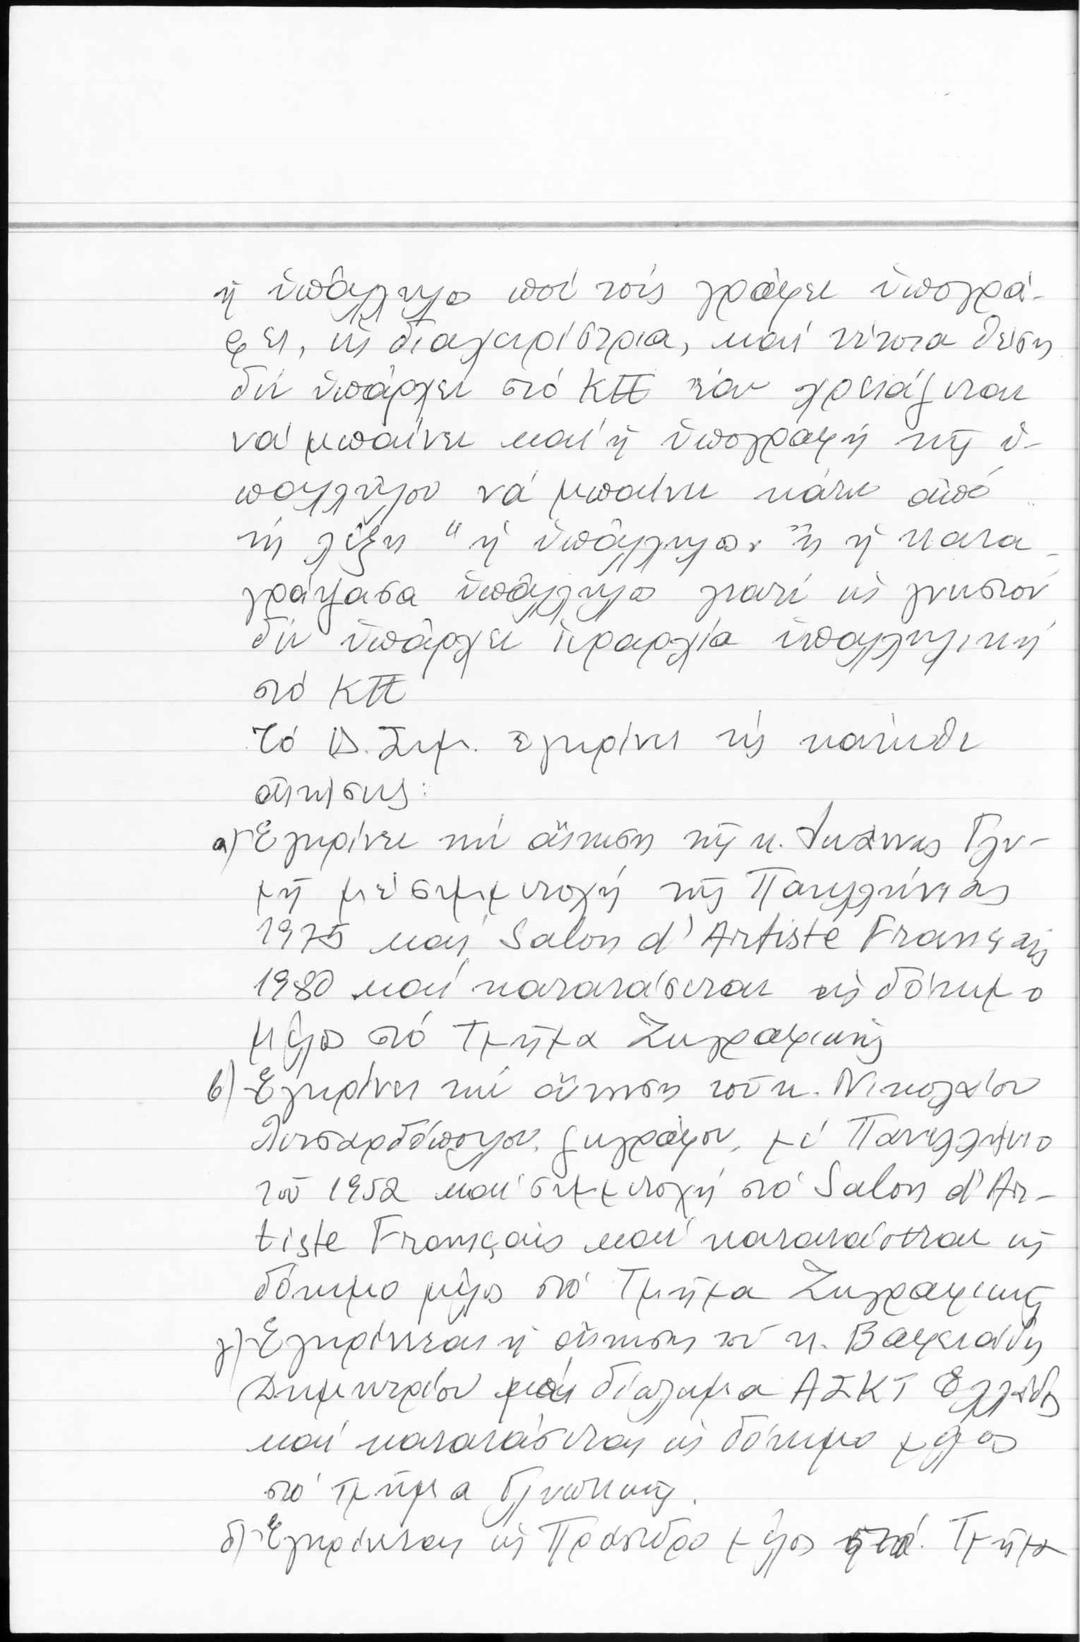 ἡ ὑπάλληλος ποὺ τοὺς γράφει ὑπογρά-
φει, ὡς διαχειρίστρια, καὶ τέτοια θέση
δὲν ὑπάρχει στὸ ΚΠΕ ἐὰν χρειάζεται
νὰ μπαίνει καὶ ἡ ὑπογραφὴ τῆς ὑ-
παλλήλου νὰ μπαίνει κάτω ἀπὸ
τὴ λέξη "ἡ ὑπάλληλος" ἢ ἡ κατα-
γράψασα ὑπάλληλος γιατὶ ὡς γνωστὸν
δὲν ὑπάρχει ἱεραρχία ὑπαλληλικὴ
στὸ ΚΠΕ
Τὸ Δ. Συμ. ἐγκρίνει τὶς κάτωθι
αἰτήσεις:
α) Ἐγκρίνει τὴν αἴτηση τῆς κ. Ἰωάννας
μὲ συμμετοχὴ τῆς Πανελλήνιας
1975 καὶ Salon d'Artiste Français
1980 καὶ κατατάσεται ὡς δόκιμο
μέλος στὸ Τμῆμα Ζωγραφικῆς
β) Ἐγκρίνει τὴν αἴτηση τοῦ κ. Νικολαΐου
ζωγράφου, μὲ Πανελλήνιο
τοῦ 1952 καὶ συμμετοχὴ στὸ Salon d'Ar-
tiste Français καὶ κατατάσεται ὡς
δόκιμο μέλος στὸ Τμῆμα Ζωγραφικῆς
γ) Ἐγκρίνεται ἡ αἴτηση τοῦ κ. Βαφειάδη
Δημητρίου μὲ δίπλωμα ΑΣΚΤ Ἑλλάδος
καὶ κατατάσεται ὡς δόκιμο μέλος
στὸ τμῆμα Γλυπτικῆς.
δ) Ἐγκρίνεται ὡς Πρόεδρο μέλος στὸ Τμῆμα